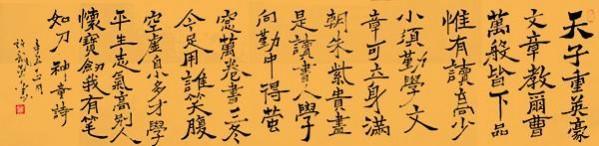 天子重英豪
文章教爾曹
萬般皆下品
惟有讀高少
小須勤學文
章可立身滿
朝朱紫貴盡
是讀書人學
向勤中得螢
窓萬卷書三冬
今足用誰笑腹
空虛自小多才學
平生志氣高別人
懷寶劍我有笔
如刀 神童詩